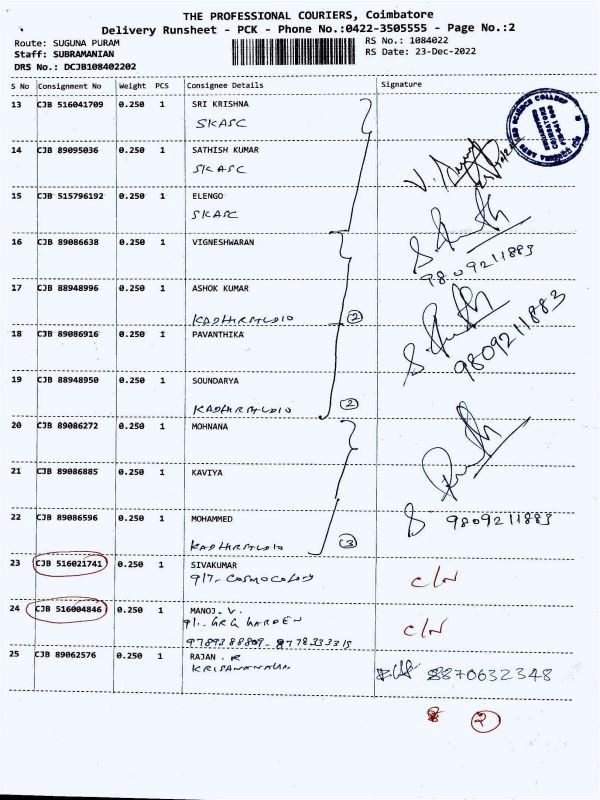 THE PROFESSIONAL COURIERS, Coimbatore
Delivery Runsheet - PCK - Phone No.:0422-3505555 - Page No.:2
Route: SUGUNA PURAM
RS No.: 1084022
Staff: SUBRAMANIAN
RS Date: 23-Dec-2022
DRS No.: DCJB108402202
S No Consignment No Weight PCS Consignee Details Signature
13 CJB 516041709 0.250 1 SRI KRISHNA
SKASC
14 CJB 89095036 0.250 1 SATHISH KUMAR
SKASC
15 CJB 515796192 0.250 1 ELENGO
SKASC
16 CJB 89086638 0.250 1 VIGNESHWARAN
9809211883
17 CJB 88948996 0.250 1 ASHOK KUMAR
KADHIRSTUDIO 2
18 CJB 89086916 0.250 1 PAVANTHIKA
9809211883
19 CJB 88948950 0.250 1 SOUNDARYA
KADHIRSTUDIO 2
20 CJB 89086272 0.250 1 MOHNANA
21 CJB 89086885 0.250 1 KAVIYA
22 CJB 89086596 0.250 1 MOHAMMED
9809211883
KADHIRSTUDIO 3
23 CJB 516021741 0.250 1 SIVAKUMAR
C/N
24 CJB 516004846 0.250 1 MANOJ. V.
GARDEN
C/N
25 CJB 89062576 0.250 1 RAJAN . R
8870632348
2